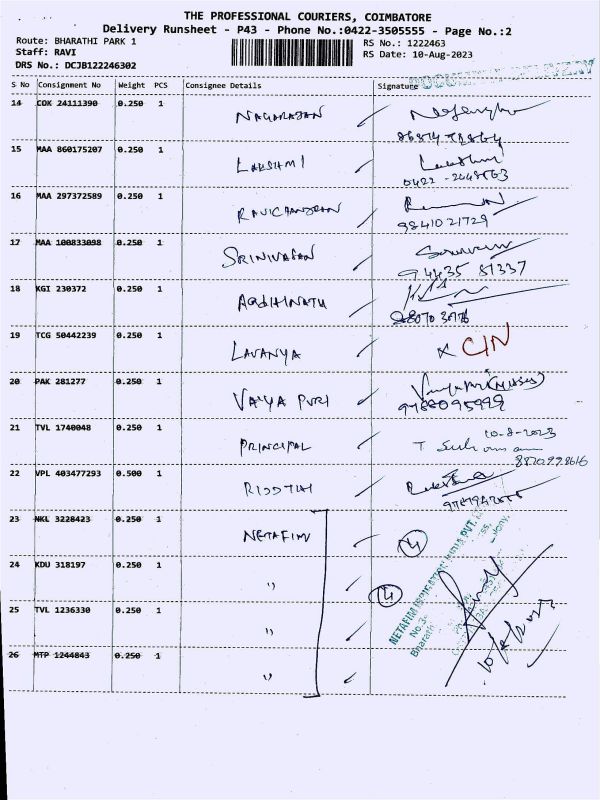 THE PROFESSIONAL COURIERS, COIMBATORE
Delivery Runsheet - P43 - Phone No.:0422-3505555 - Page No.:2
Route: BHARATHI PARK 1
RS No.: 1222463
Staff: RAVI
RS Date: 10-Aug-2023
DRS No.: DCJB122246302
S No Consignment No Weight PCS Consignee Details Signature
14 COK 24111390 0.250 1 NAGARAJAN
15 MAA 860175207 0.250 1 LAKSHMI
16 MAA 297372589 0.250 1 RAVICHANDRAN
9841021729
17 MAA 100833098 0.250 1 SRINIVASAN
94435 81337
18 KGI 230372 0.250 1
19 TCG 50442239 0.250 1 LAVANYA × CIN
20 PAK 281277 0.250 1 VAIYAPURI
9788095999
21 TVL 1740048 0.250 1 PRINCIPAL 10-8-2023
22 VPL 403477293 0.500 1 RIDDTHI
23 NKL 3228423 0.250 1 NETAFIM 4
24 KDU 318197 0.250 1 " 4
25 TVL 1236330 0.250 1 "
26 MTP 1244843 0.250 1 "
NETAFIM IRRIGATION INDIA PVT.
Bharath